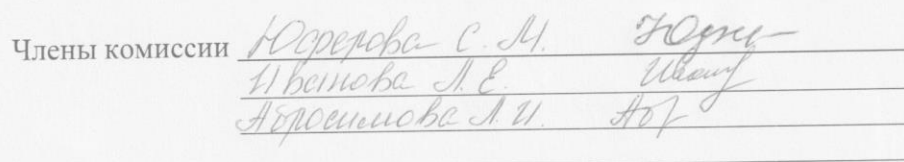 Члены комиссии Юсрерова С. М.
Иванова Л. Е.
Абросимова Л. И. Абр